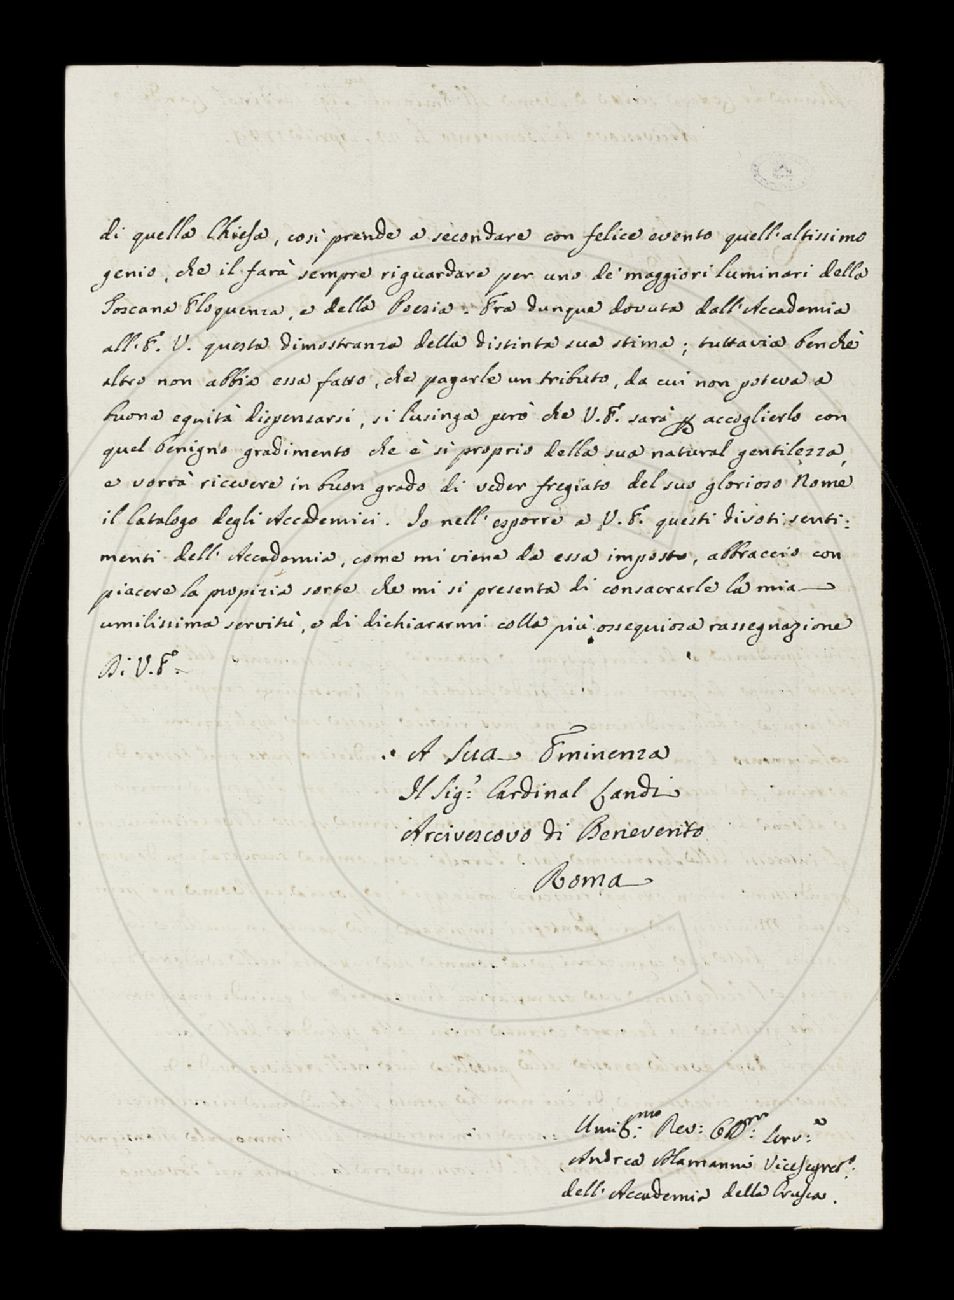 di quella Chiesa, così prende a secondare con felice evento quell'altissimo
genio, che il farà sempre riguardare per uno de' maggiori luminari della
Toscana Eloquenza, e della Poesia. Era dunque dovuta dall'Accademia
all'E. V. questa dimostranza della distinta sua stima; tuttavia benchè
altro non abbia essa fatto, che pagarle un tributo, da cui non poteva a
buona equità dispensarsi, si lusinga però che V. E. sarà p accoglierlo con
quel benigno gradimento che è sì proprio della sua natural gentilezza,
e vorrà ricevere in buon grado di veder fregiato del suo glorioso Nome
il Catalogo degli Accademici. Io nell'esporre a V. E. questi divoti senti:
menti dell'Accademia, come mi viene da essa imposto, abbraccio con
piacere la propizia sorte che mi si presenta di consacrarle la mia
umilissima servitù, e di dichiararmi colla più ossequiosa rassegnazione
Di V. E.
A Sua Eminenza
Il Sig.r Cardinal Landi
Arcivescovo di Benevento
Roma
Umil:mo Dev: Obb:mo Serv:e
Andrea Alamanni Vicesegret:o
dell'Accademia della Crusca.